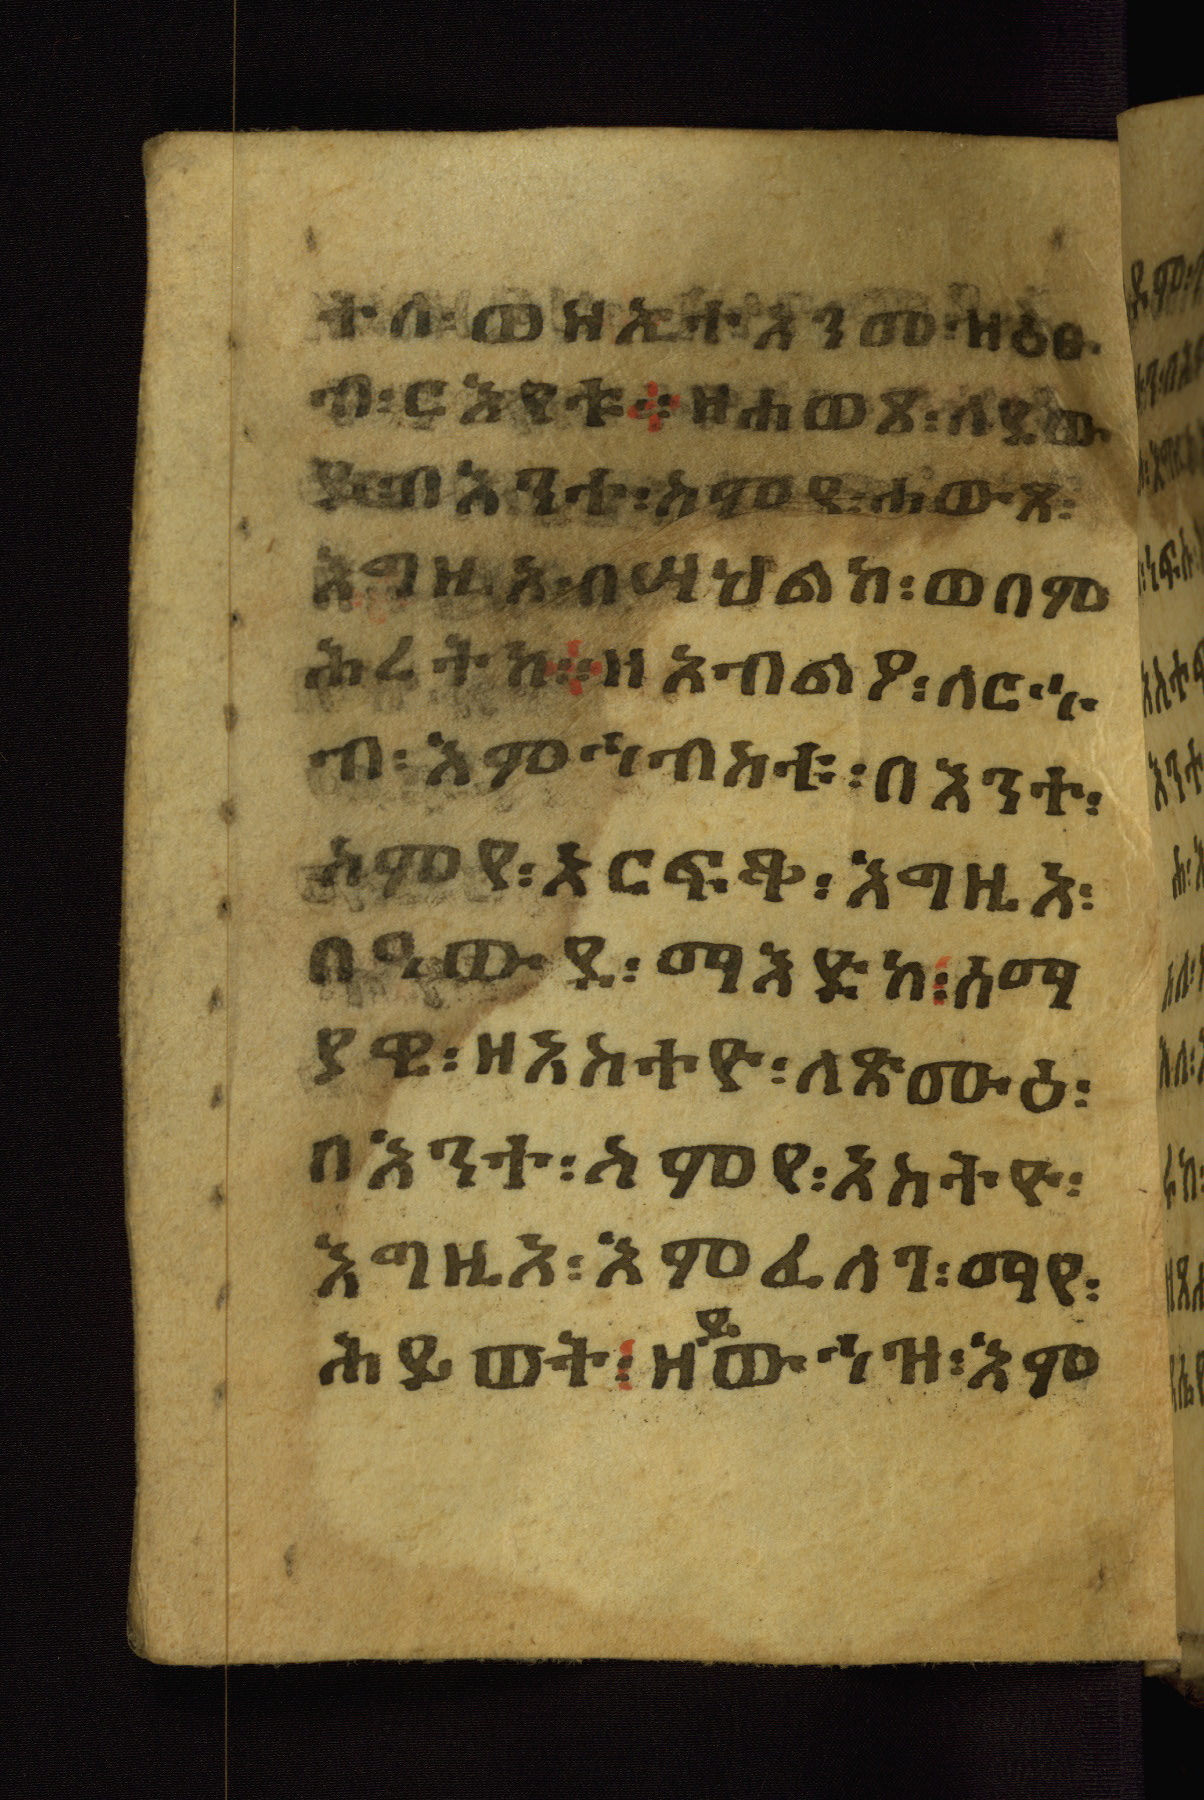 ተሰ፡ወዘኢተአንመ፡ዘዕፁ
ብ፡ርእየቱ፡፡ዘሐወጸ፡ለደው
ያ፡በእንቲ፡አምየ፡ሐውጸ፡
እግዚአ፡በሣህልከ፡ወበም
ሕረትከ፡፡ዘአብልዖ፡ለርኁ
ብ፡እምኅብስቱ፡፡በእንተ፡
ስምየ፡አርፍቅ፡እግዚአ፡
በዓውደ፡ማእድከ፡ሰማ
ያዊ፡ዘአስተዮ፡ለጽሙዕ፡
በእንተ፡ስምየ፡አስትዮ፡
እግዚአ፡እምፈለገ፡ማየ፡
ሕይወት፡ዘይውኅዝ፡እም